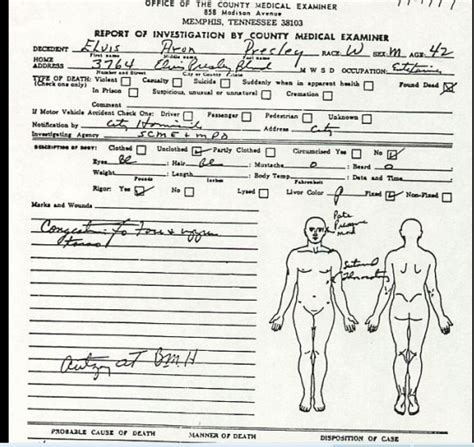 OFFICE OF THE COUNTY MEDICAL EXAMINER
858 Madison Avenue
MEMPHIS, TENNESSEE 38103
REPORT OF INVESTIGATION BY COUNTY MEDICAL EXAMINER
DECEDENT Elvis Aron Presley RACE W SEX M AGE 42
First name Middle name Last name
HOME ADDRESS 3764 Elvis Presley Blvd M W S D OCCUPATION:
Number and Street City or County State
TYPE OF DEATH: Violent Casualty Suicide Suddenly when in apparent health Found Dead
(Check one only) In Prison Suspicious, unusual or unnatural Cremation
Comment
If Motor Vehicle Accident Check One: Driver Passenger Pedestrian Unknown
Notification by City Homicide Address City
Investigating Agency SCME & MPD
DESCRIPTION OF BODY: Clothed Unclothed Partly Clothed Circumcised Yes No
Eyes Bl Hair Mustache 0 Beard 0
Weight Length Body Temp Date and Time
Pounds Inches Fahrenheit
Rigor: Yes No Lysed Livor Color P Fixed Non-Fixed
Marks and Wounds
Congestion to Face & upper
Torso
Pressure
mark
Autopsy at BMH
PROBABLE CAUSE OF DEATH MANNER OF DEATH DISPOSITION OF CASE